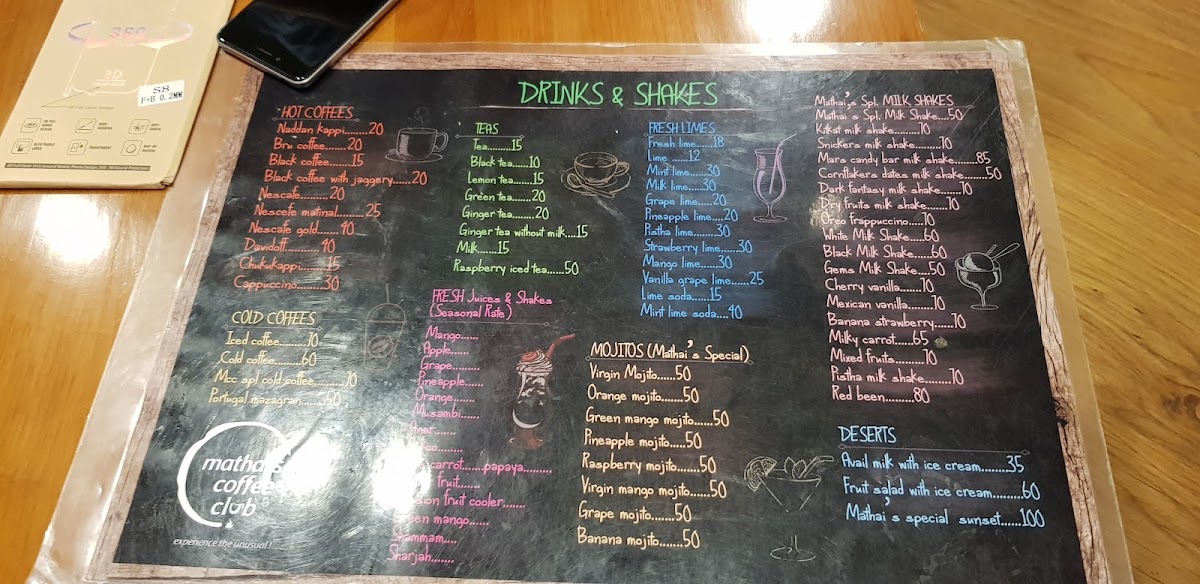 360
3D
S8
F+B 0.2MM
DRINKS & SHAKES
HOT COFFEES
Naddan kappi.......20
Bru coffee.......20
Black coffee.......15
Black coffee with jaggery......20
Nescafe........20
Nescefe matinal........25
Nescafe gold.......40
Davidoff........40
Chukukappi........15
Cappuccino........30
COLD COFFEES
Iced coffee........70
Cold coffee.......60
Mcc spl cold coffee..........70
Portugal mazagran.......50
mathai's
coffee
club
experience the unusual!
TEAS
Tea.......15
Black tea......10
Lemon tea.......15
Green tea.......20
Ginger tea.......20
Ginger tea without milk....15
Milk.......15
Raspberry iced tea......50
FRESH Juices & Shakes
(Seasonal Rate)
Mango......
Apple......
Grape........
Pineapple......
Orange.......
Musambi......
carrot......papaya.........
fruit.......
fruit cooler.......
Green mango......
Shammam....
Sharjah.......
FRESH LIMES
Fresh lime......18
Lime .....12
Mint lime.....30
Milk lime.....30
Grape lime.....20
Pineapple lime....20
Pistha lime.......30
Strawberry lime.....30
Mango lime......30
Vanilla grape lime.......25
Lime soda......15
Mint lime soda....40
MOJITOS (Mathai's Special)
Virgin Mojito......50
Orange mojito.......50
Green mango mojito......50
Pineapple mojito.....50
Raspberry mojito.......50
Virgin mango mojito......50
Grape mojito.......50
Banana mojito.......50
Mathai's Spl. MILK SHAKES
Mathai's Spl. Milk Shake....50
Kitkat milk shake.......70
Snickers milk shake.......70
Mars candy bar milk shake......85
Cornflakers dates milk shake.......50
Dark fantasy milk shake......70
Dry fruits milk shake.......70
Oreo frappuccino.....70
White Milk Shake.....60
Black Milk Shake......60
Gems Milk Shake....50
Cherry vanilla.......70
Mexican vanilla.......70
Banana strawberry......70
Milky carrot.....65
Mixed fruits.........70
Pistha milk shake.......70
Red been.........80
DESERTS
Avail milk with ice cream........35
Fruit salad with ice cream.........60
Mathai's special sunset......100